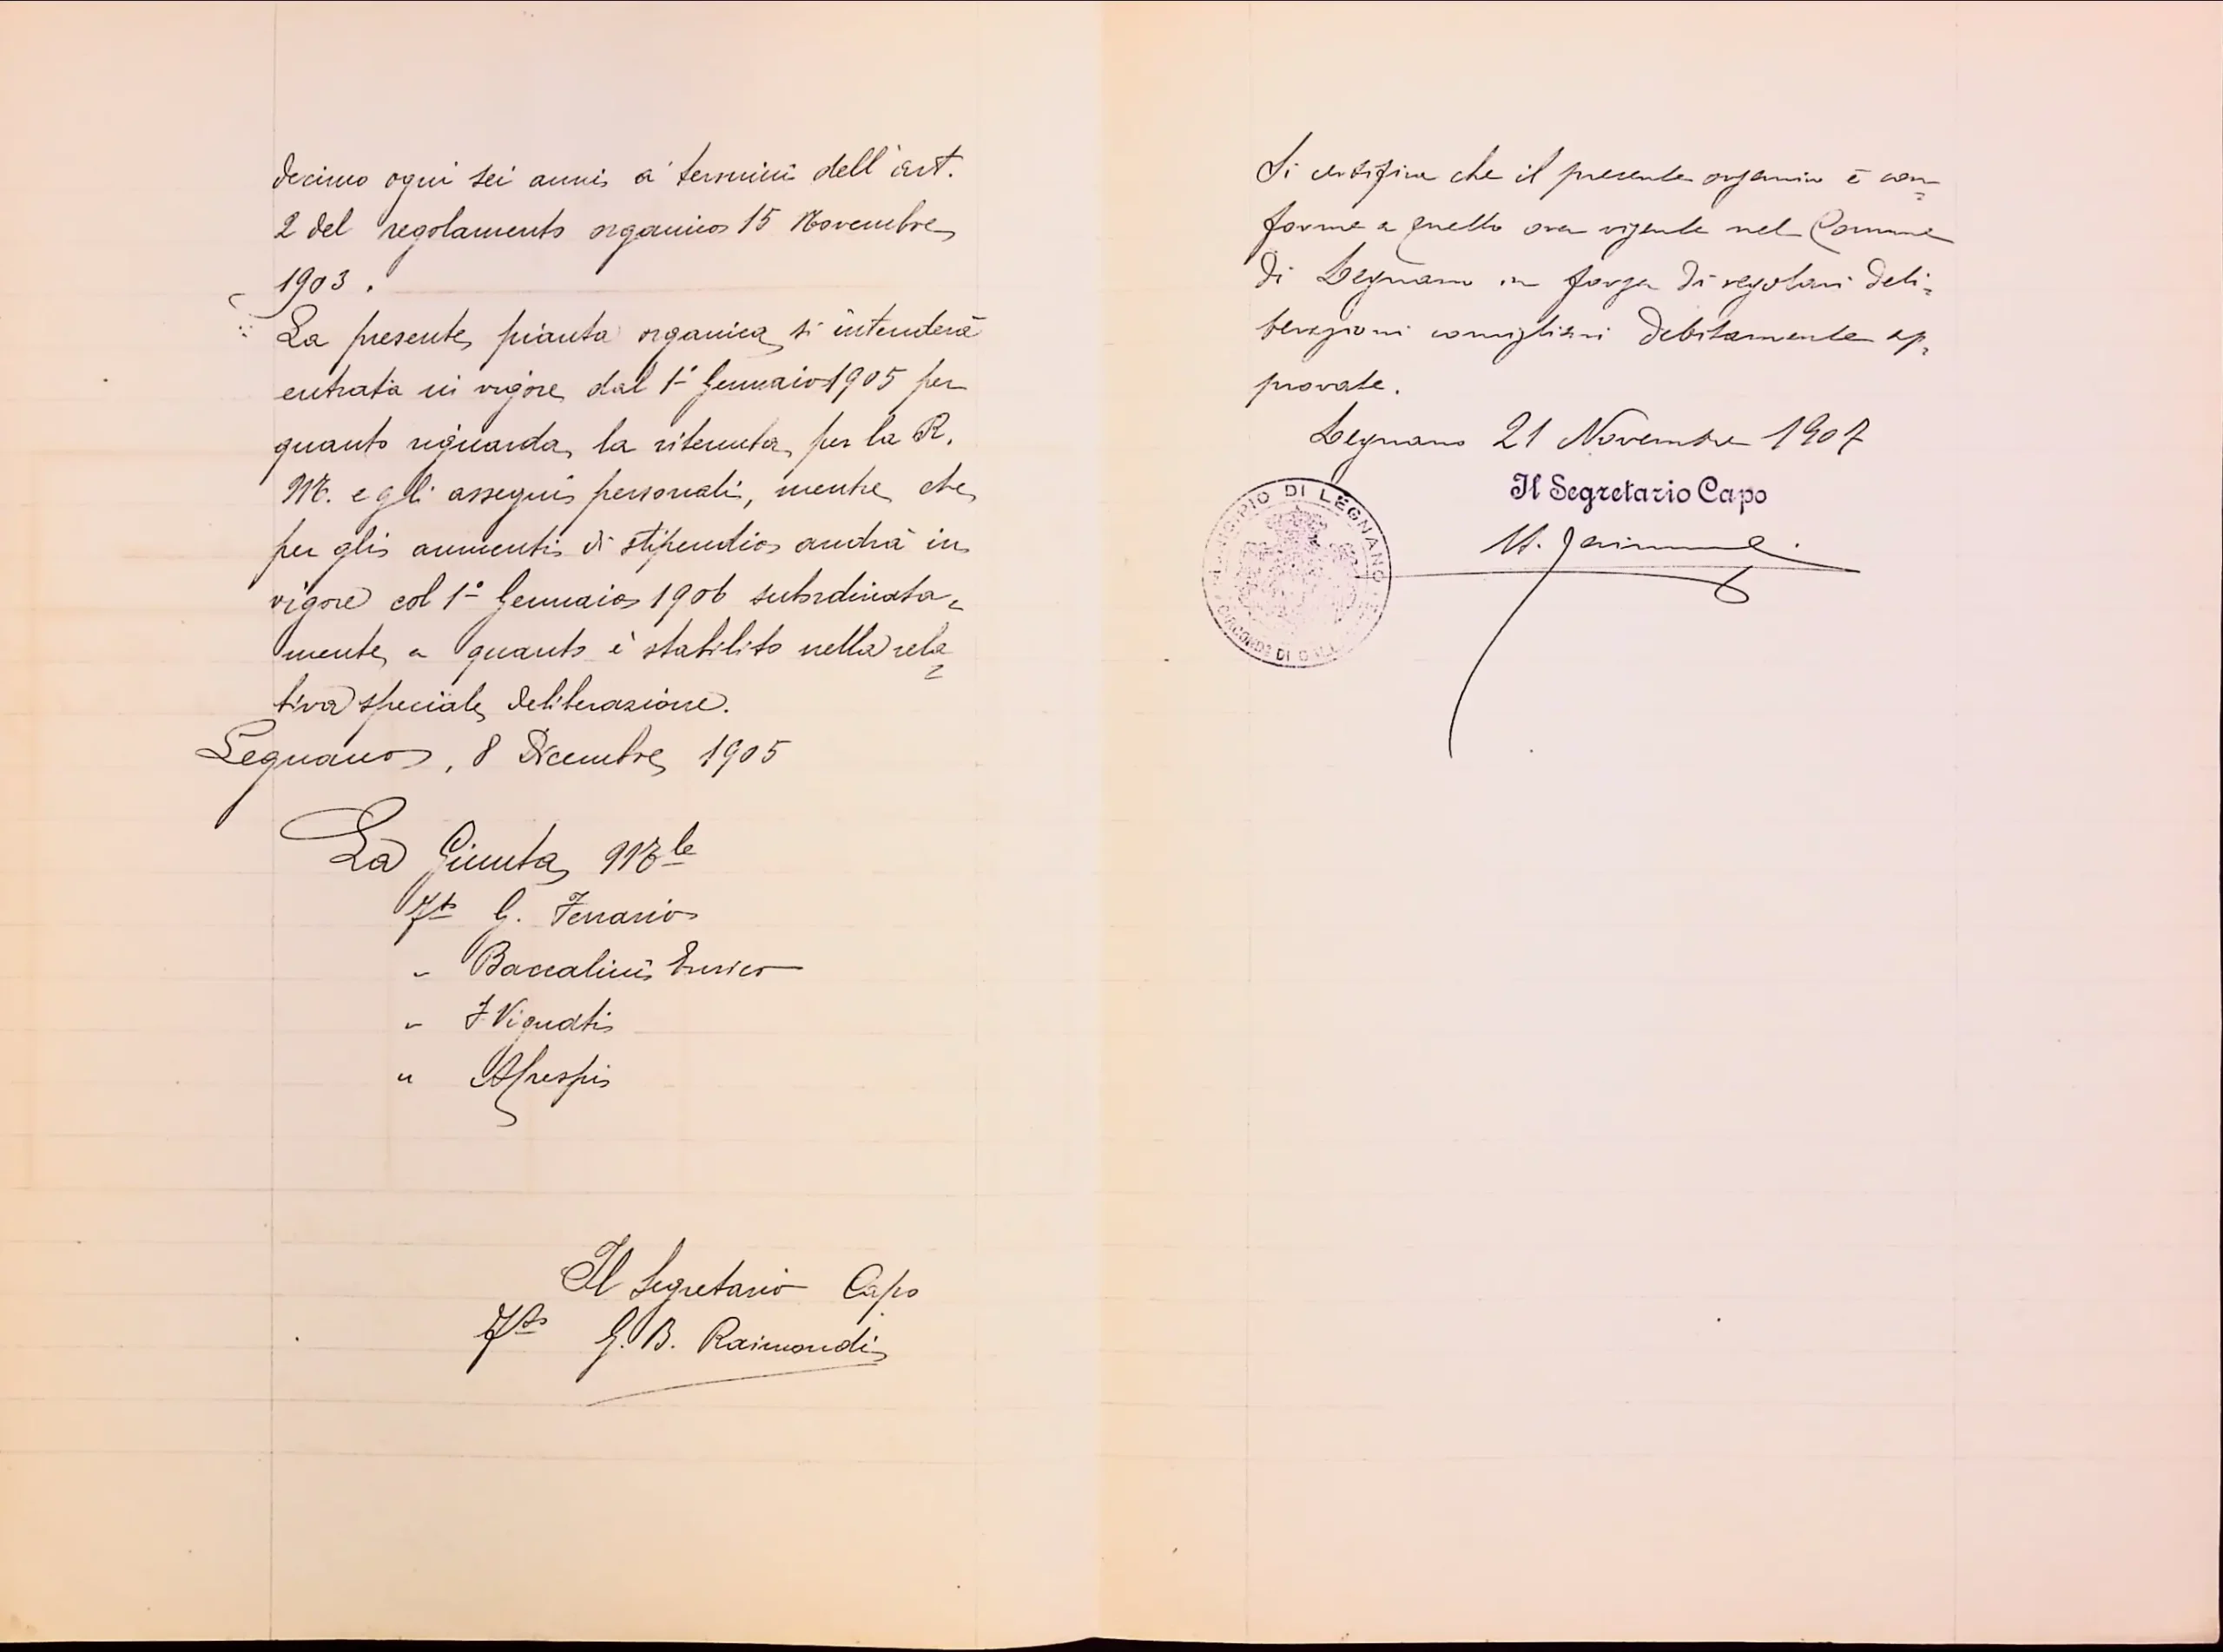 decimo ogni sei anni a' termini dell'art.
2 del regolamento organico 15 Novembre
1903.
La presente pianta organica si intenderà
entrata in vigore dal 1º Gennaio 1905 per
quanto riguarda la ritenuta per la R.
M. e gli assegni personali, mentre che
per gli aumenti di stipendio andrà in
vigore col 1º Gennaio 1906 subordinata=
mente a quanto è stabilito nella rela=
tiva speciale deliberazione.
Legnano, 8 Dicembre 1905
La Giunta Mle
Fto G. Ferrario
" Baccalini Enrico
" F Vignati
" A Crespi
Il Segretario Capo
Fto G. B. Raimondi
Si certifica che il presente organico è con=
forme a quello ora vigente nel Comune
di Legnano in forza di regolari deli=
berazioni consigliari debitamente ap=
provate.
Legnano 21 Novembre 1907
Il Segretario Capo
MUNICIPIO DI LEGNANO